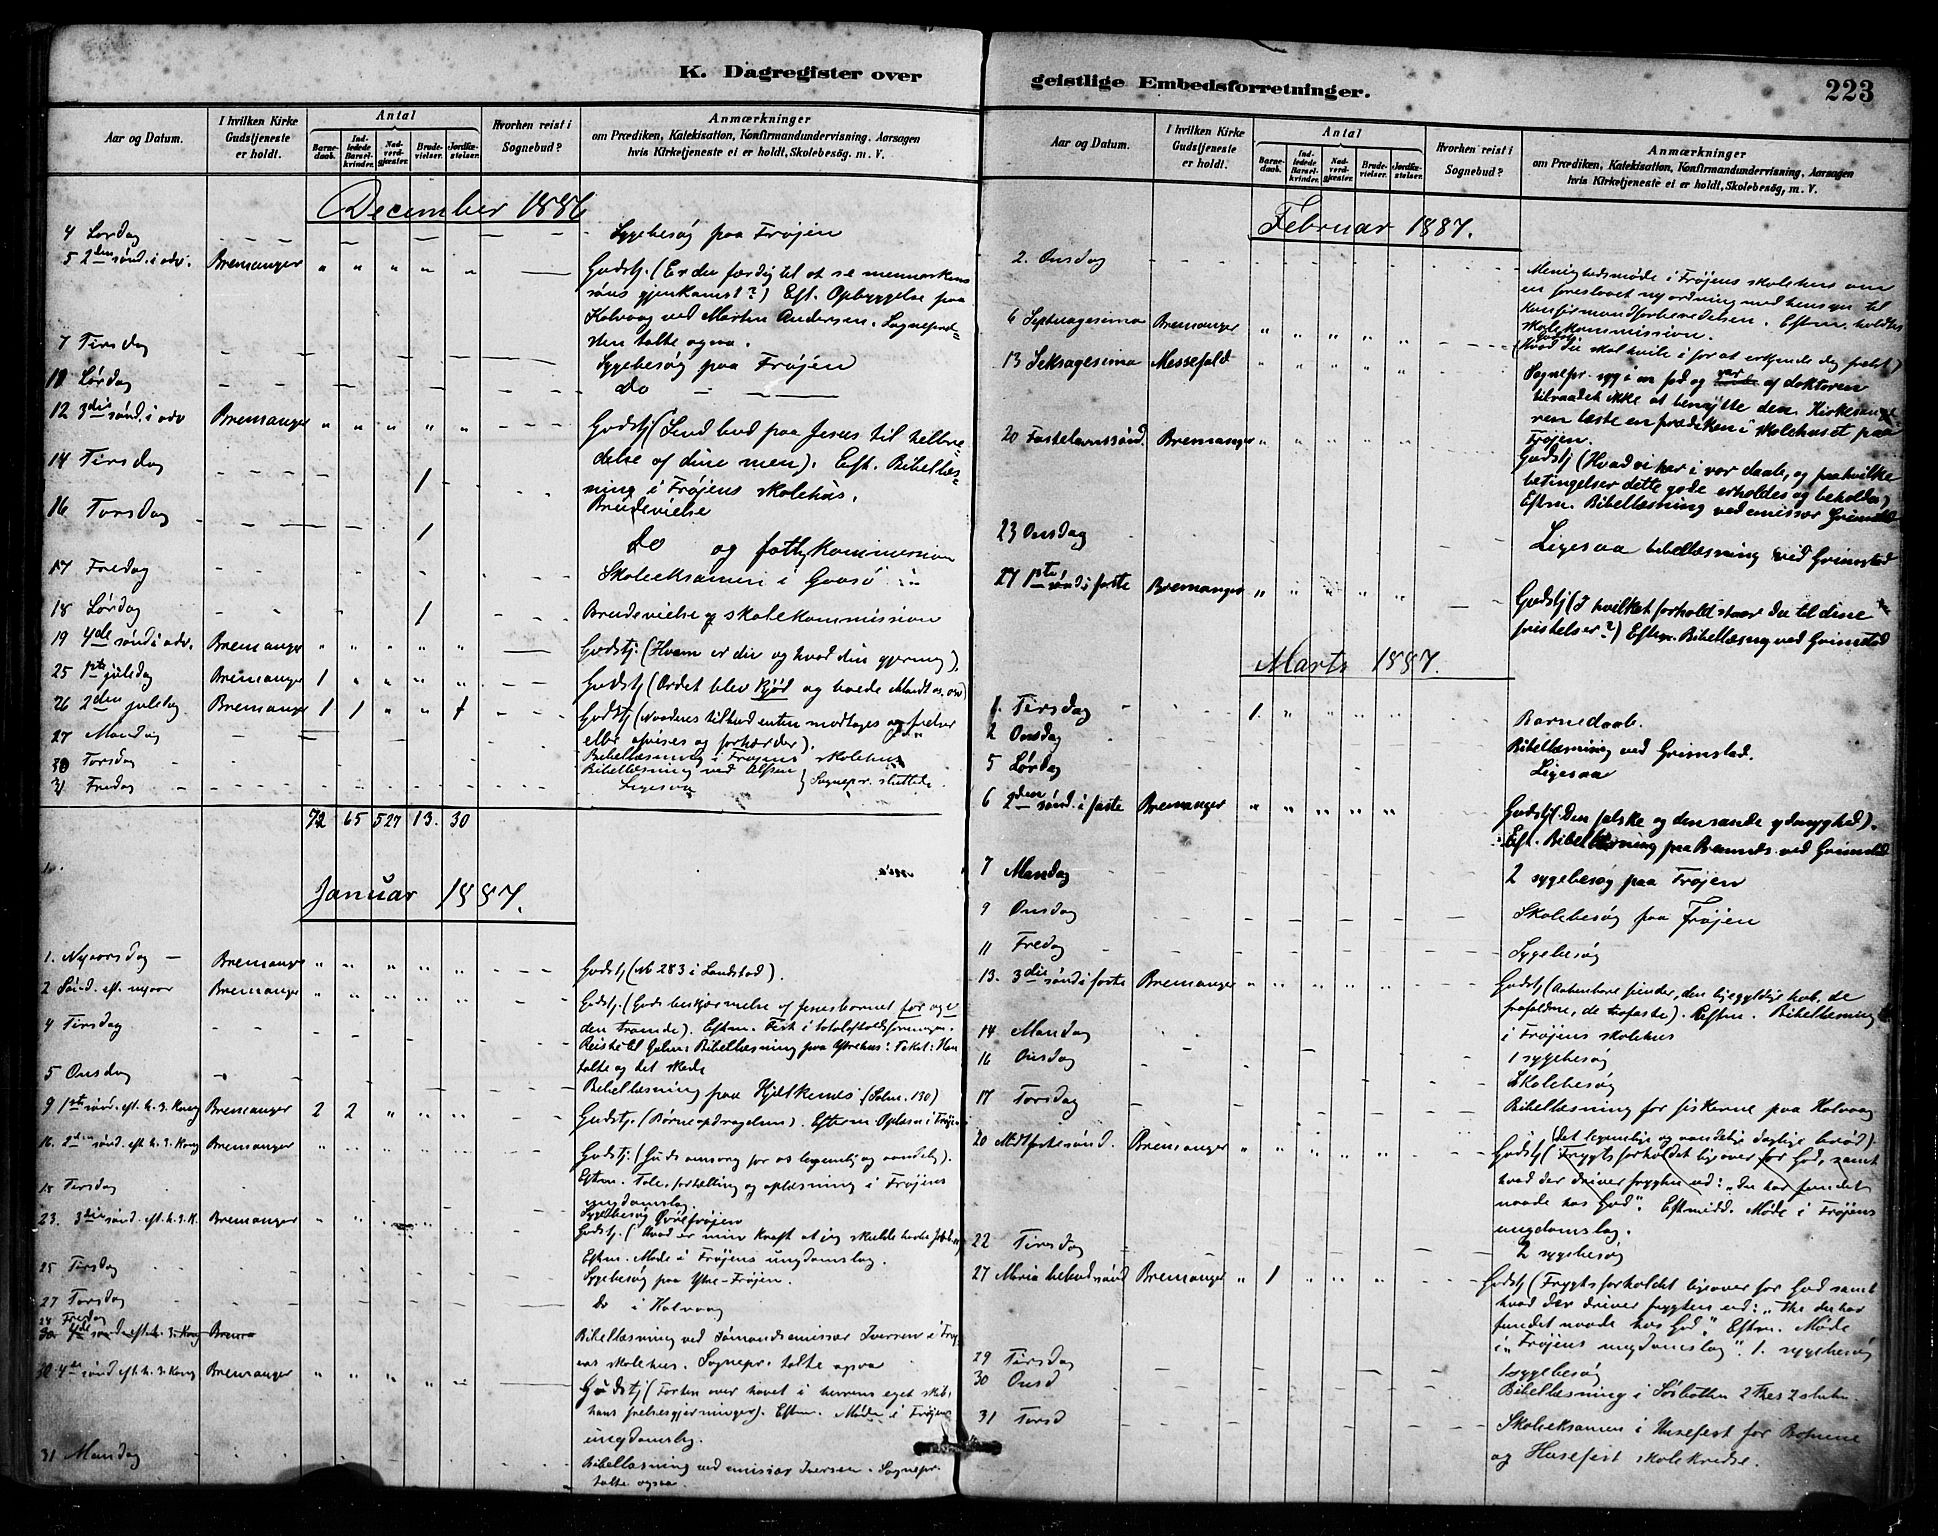 K. Dagregister over
geistlige Embedsforretninger.
223
Aar og Datum.
I hvilken Kirke Gudstjeneste er holdt.
Antal
Barnedaab.
Indledede Barselkvinder.
Nadverdgjæster.
Brudevielser.
Jordfæstelser.
Hvorhen reist i Sognebud?
Anmærkninger
om Prædiken, Katekisation, Konfirmandundervisning, Aarsagen
hvis Kirketjeneste ei er holdt, Skolebesøg. m. V.
December 1886
4 Lørdag Sygebesøg paa Frøjen
5 2den sønd. i adv. Bremanger " " " " " Gudstj. (Er du færdig til at se menneskens
søns gjenkomst?) Eft. Opbyggelse paa
Kalvaag ved Martin Andersen. Sognepræ-
sten talte ogsaa.
7 Tirsdag Sygebesøg paa Frøjen
Lørdag do
12 3die sønd. i adv Bremanger " " " " " Gudstj (Send bud paa Jesus til helbre-
delse af dine men). Eft. Bibellæs-
ning i Frøjens skolehus.
14 Tirsdag 1 Brudevielse
16 Torsdag 1 Do og kommission
17 Fredag Skoleeksamen i
18 Lørdag 1 Brudevielse og skolekommission
19 4de sønd i adv. Bremanger " " " " " Gudstj. (Hvem er du og hvad din gjerning).
25 1ste juledag Bremanger 1 " " " " Gudstj (Ordet blev kjød og boede iblandt os. osv)
26 2den juledag Bremanger 1 1 " " 1 Gudstj (Naadens tilbud enten modtages og frelser
eller afvises og forhærder).
27 Mandag Bibellæsning i Frøjens skolehus
30 Torsdag Bibellæsning ved } Sognepr. sluttede.
31 Fredag Ligesaa
72 65 527 13. 30
Januar 1887.
1. Nyaarsdag Bremanger " " " " " Gudstj (No 283 i Landstad).
2 Sønd. eft. nyaar Bremanger " " " " " Gudstj. (Guds beskjærmelse af Jesusbarnet for og
den troende). Eftm. i totalafholdsforeningen.
4 Tirsdag Bibellæsning paa
talte og det skede
5 Onsdag Bibellæsning paa Hjelkenes (Salm. 130)
9 1ste sønd. eft. h. 3. Kong Bremanger 2 2 " " " Gudstj. (Børneopdragelsen). Eftm
16. 2den sønd. eft h. 3. Kong Bremanger " " " " " Gudstj. (Guds omsorg for os legemlig og aandelig).
Eftm. Tale, fortælling og oplæsning i Frøjens
ungdomslag.
18 Tirsdag Sygebesøg Øvrefrøjen
23. 3die sønd. eft. h. 3. K. Bremanger " " " " Gudstj. (Hvad er min kraft at jeg skulde
Eftm. Møde i Frøjens ungdomslag.
25 Tirsdag Sygebesøg paa Ytre-Frøjen.
27 Torsdag do i Kalvaag
28 Fredag Bibellæsning ved Sømandsemissær Iversen i Frøj-
ens skolehus. Sognepr. talte ogsaa
30. 4de sønd eft. h. 3. Kong Bremanger " " " " Gudstj (Farten over havet i herrens eget skib,
hans frelsesgjerninger). Eftm. Møde i Frøjens
ungdomslag.
31 Mandag Bibellæsning ved emissær Iversen. Sognepr.
talte ogsaa.
Aar og Datum.
I hvilken Kirke Gudstjeneste er holdt.
Antal
Barnedaab.
Indledede Barselkvinder.
Nadverdgjæster.
Brudevielser.
Jordfæstelser.
Hvorhen reist i Sognebud?
Anmærkninger
om Prædiken, Katekisation, Konfirmandundervisning, Aarsagen
hvis Kirketjeneste ei er holdt, Skolebesøg, m. V.
Februar 1887.
2. Onsdag Menighedsmøde i Frøjens skolehus om
en foreslaaet ny ordning med hensyn til
Konfirmandforberedelsen. Eftm. holdtes
skolekommission.
6 Septuagesima Bremanger " " " " " (Hvad du skal hvile i for at erkjende dig frelst)
13 Seksagesima Messefald " " " " " Sognepr. syg i en fod og var af doktoren
tilraadet ikke at benytte den. Kirkesange-
ren læste en prædiken i skolehuset paa
Frøjen.
20 Fastelavnssønd. Bremanger " " " " " Gudstj (Hvad vi har i vor daab, og paa hvilke
betingelser dette gode erholdes og beholdes)
Eftm. Bibellæsning ved emissær Grimstad
23 Onsdag Ligesaa bibellæsning ved Grimstad
27 1ste sønd i faste Bremanger " " " " " Gudstj (I hvilket forhold staar du til dine
fristelser?) Eftm. Bibellæsng ved Grimstad
Marts 1887.
1. Tirsdag 1. " " " " Barnedaab.
2 Onsdag Bibellæsning ved Grimstad.
5 Lørdag Ligesaa
6 2den sønd. i faste Bremanger " " " " " Gudstj (Den falske og den sande ydmyghed).
Eft. Bibellæsning paa ved Grimstad
7 Mandag 2 sygebesøg paa Frøjen
9 Onsdag Skolebesøg paa Frøjen
11 Fredag Sygebesøg
13. 3die sønd i faste Bremanger " " " " " Gudstj (Aabenbare fiender, den ligegyldige hob, de
frafaldne, de trofaste). Eftm. Bibellæsning
i Frøjens skolehus
14 Mandag 1 sygebesøg
16 Onsdag Skolebesøg
17 Torsdag Bibellæsning for fiskerne paa Kalvaag
20 Midtfastesønd. Bremanger " " " " " (det legemlige og aandelige daglige brød)
Gudstj (Frygtsforholdet ligeover for Gud, samt
hvad der driver frygten ud: "Du har fundet
naade hos Gud". Eftmidd. Møde i Frøjens
ungdomslag.
22 Tirsdag 2 sygebesøg
27 Maria bebud.sønd Bremanger " 1 " " " Gudstj (Frygtsforholdet ligeover for God samt
hvad der driver frygten ud: "Thi du har
fundet naade hos Gud". Eftm. Møde
i "Frøjens ungdomslag". 1. sygebesøg
29 Tirsdag 1 sygebesøg
30 Onsd Bibellæsning i Sørbotten
31 Torsd Skoleeksamen i Husefest for
og Husefest skolekredse.